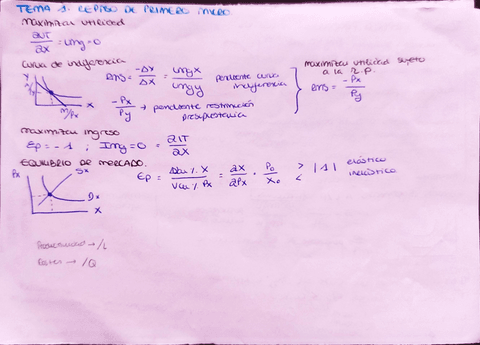 TEMA 1: REPASO DE PRIMERO MICRO.
Maximizar utilidad
∂UT/∂X = Umg = 0
Curva de indiferencia
Y
X
M/Px
RMS = -ΔY/ΔX = UmgX/UmgY pendiente curva indiferencia
-Px/Py → pendiente restricción presupuestaria
Maximizar utilidad sujeto a la R.P.
RMS = -Px/Py
Maximizar ingreso
Ep = -1 ; Img = 0 = ∂IT/∂X
EQUILIBRIO DE MERCADO.
Px
Sx
Dx
X
Ep = Var % X / Var % Px = ∂X/∂Px · P0/X0 > < |1| elástico inelástico
Productividad → /L
Costes → /Q